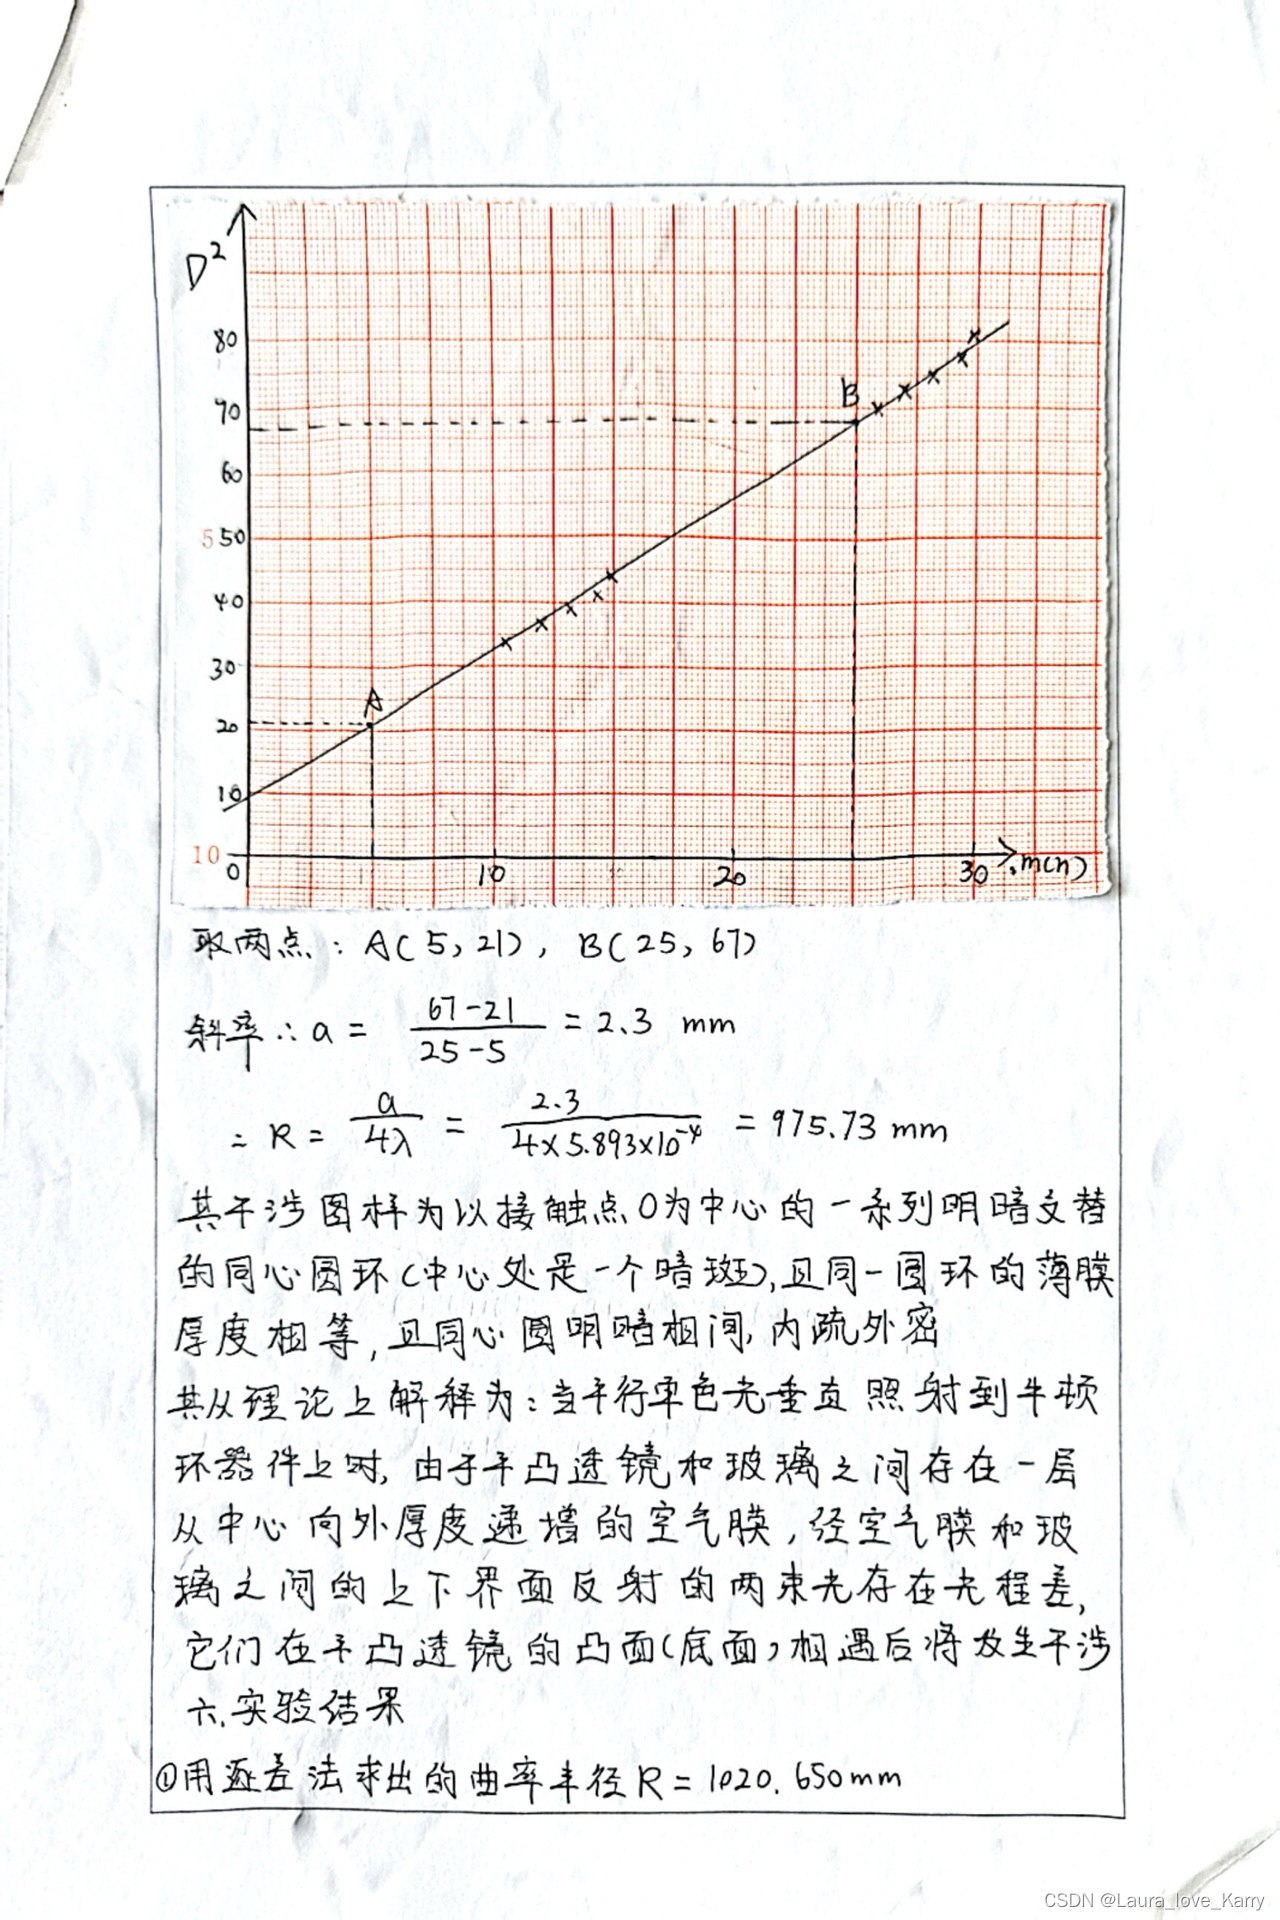 D²
80
70
60
5 50
40
30
20
10
10
0
10
20
30
m(n)
A
B
取两点：A(5,21)，B(25,67)
斜率∴a = 67-21 / 25-5 = 2.3 mm
= R = a / 4λ = 2.3 / 4×5.893×10⁻⁴ = 975.73 mm
其干涉图样为以接触点O为中心的一系列明暗交替
的同心圆环(中心处是一个暗斑),且同一圆环的薄膜
厚度相等,且同心圆明暗相间,内疏外密
其从理论上解释为:当平行单色光垂直照射到牛顿
环器件上时,由于平凸透镜和玻璃之间存在一层
从中心向外厚度递增的空气膜,经空气膜和玻
璃之间的上下界面反射的两束光存在光程差,
它们在平凸透镜的凸面(底面)相遇后将发生干涉
六.实验结果
①用逐差法求出的曲率半径R=1020.650mm
CSDN @Laura_love_Karry